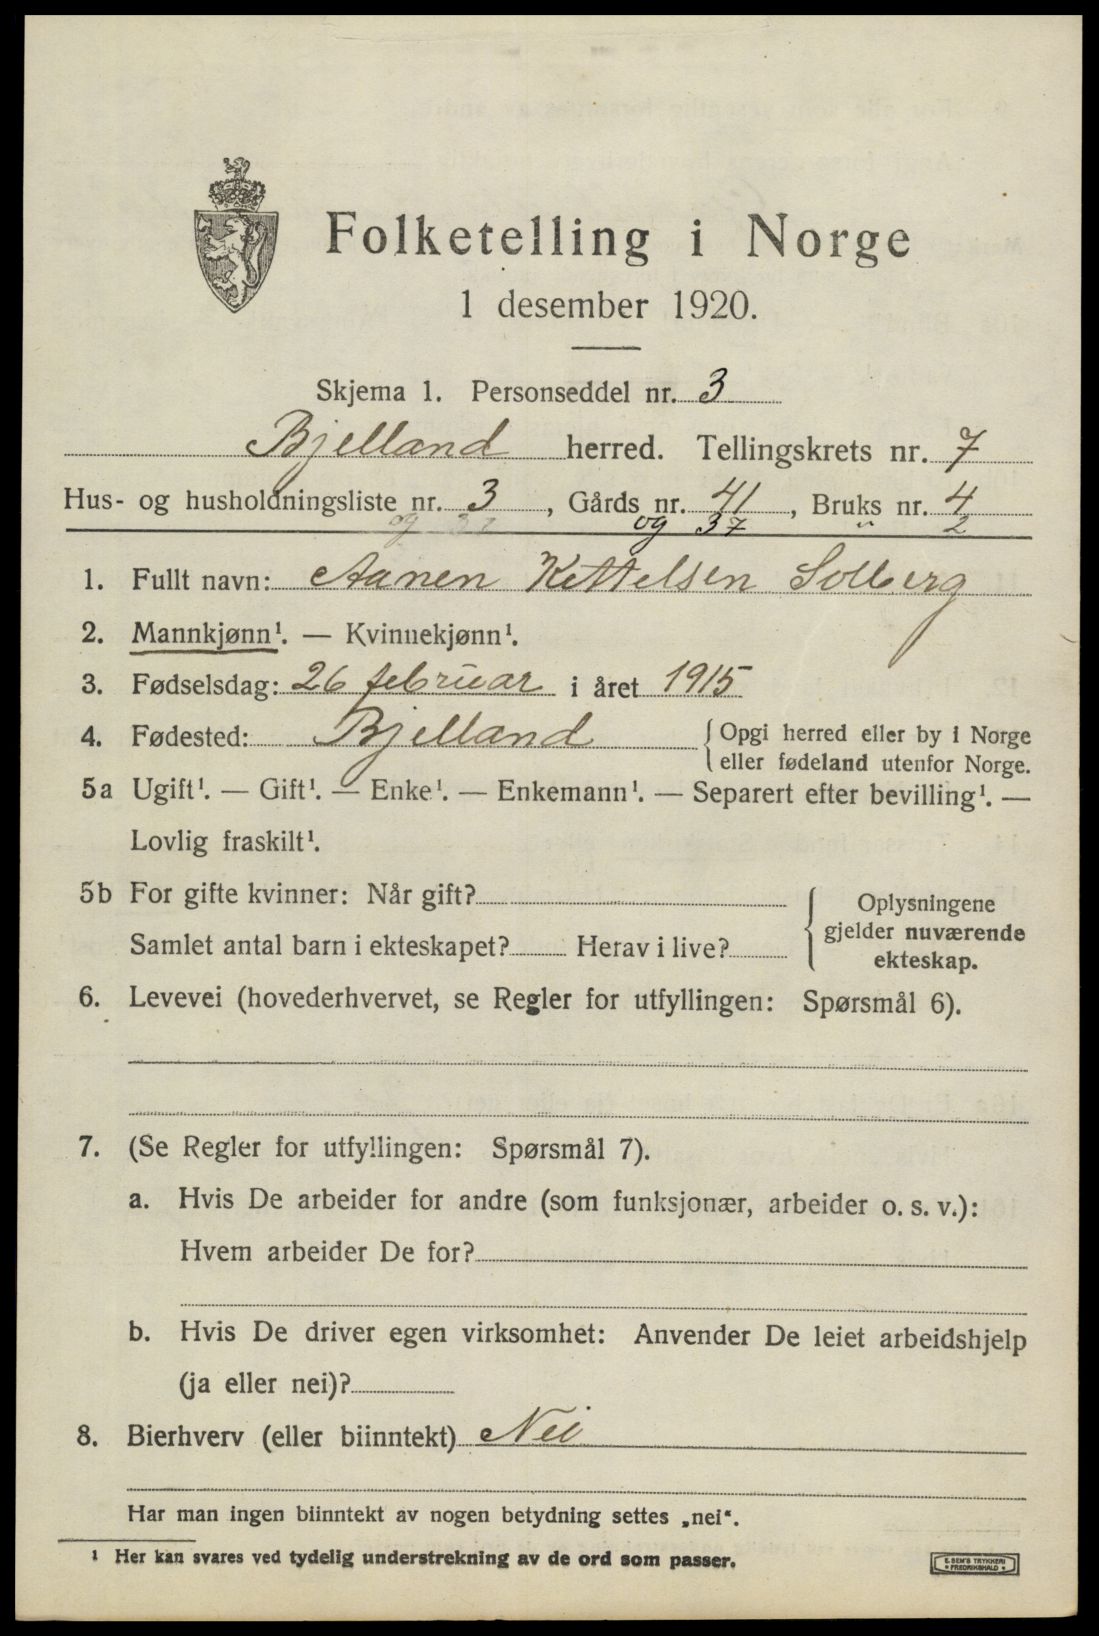 Folketelling i Norge
1 desember 1920.
Skjema 1. Personseddel nr. 3
Bjelland herred. Tellingskrets nr. 7
Hus- og husholdningsliste nr. 3, Gårds nr. 41, Bruks nr. 4
og 37 og 37 " 2
1. Fullt navn: Aanen Kittelsen Solberg
2. Mannkjønn¹. — Kvinnekjønn¹.
3. Fødselsdag: 26 februar i året 1915
4. Fødested: Bjelland {Opgi herred eller by i Norge
eller fødeland utenfor Norge.
5a Ugift¹. — Gift¹. — Enke¹. — Enkemann¹. — Separert efter bevilling¹. —
Lovlig fraskilt¹.
5b For gifte kvinner: Når gift?
Samlet antal barn i ekteskapet? Herav i live?
Oplysningene
gjelder nuværende
ekteskap.
6. Levevei (hovederhvervet, se Regler for utfyllingen: Spørsmål 6).
7. (Se Regler for utfyllingen: Spørsmål 7).
a. Hvis De arbeider for andre (som funksjonær, arbeider o. s. v.):
Hvem arbeider De for?
b. Hvis De driver egen virksomhet: Anvender De leiet arbeidshjelp
(ja eller nei)?
8. Bierhverv (eller biinntekt) Nei
Har man ingen biinntekt av nogen betydning settes „nei“.
¹ Her kan svares ved tydelig understrekning av de ord som passer.
E. SEM'S TRYKKERI
• FREDRIKSHALD •